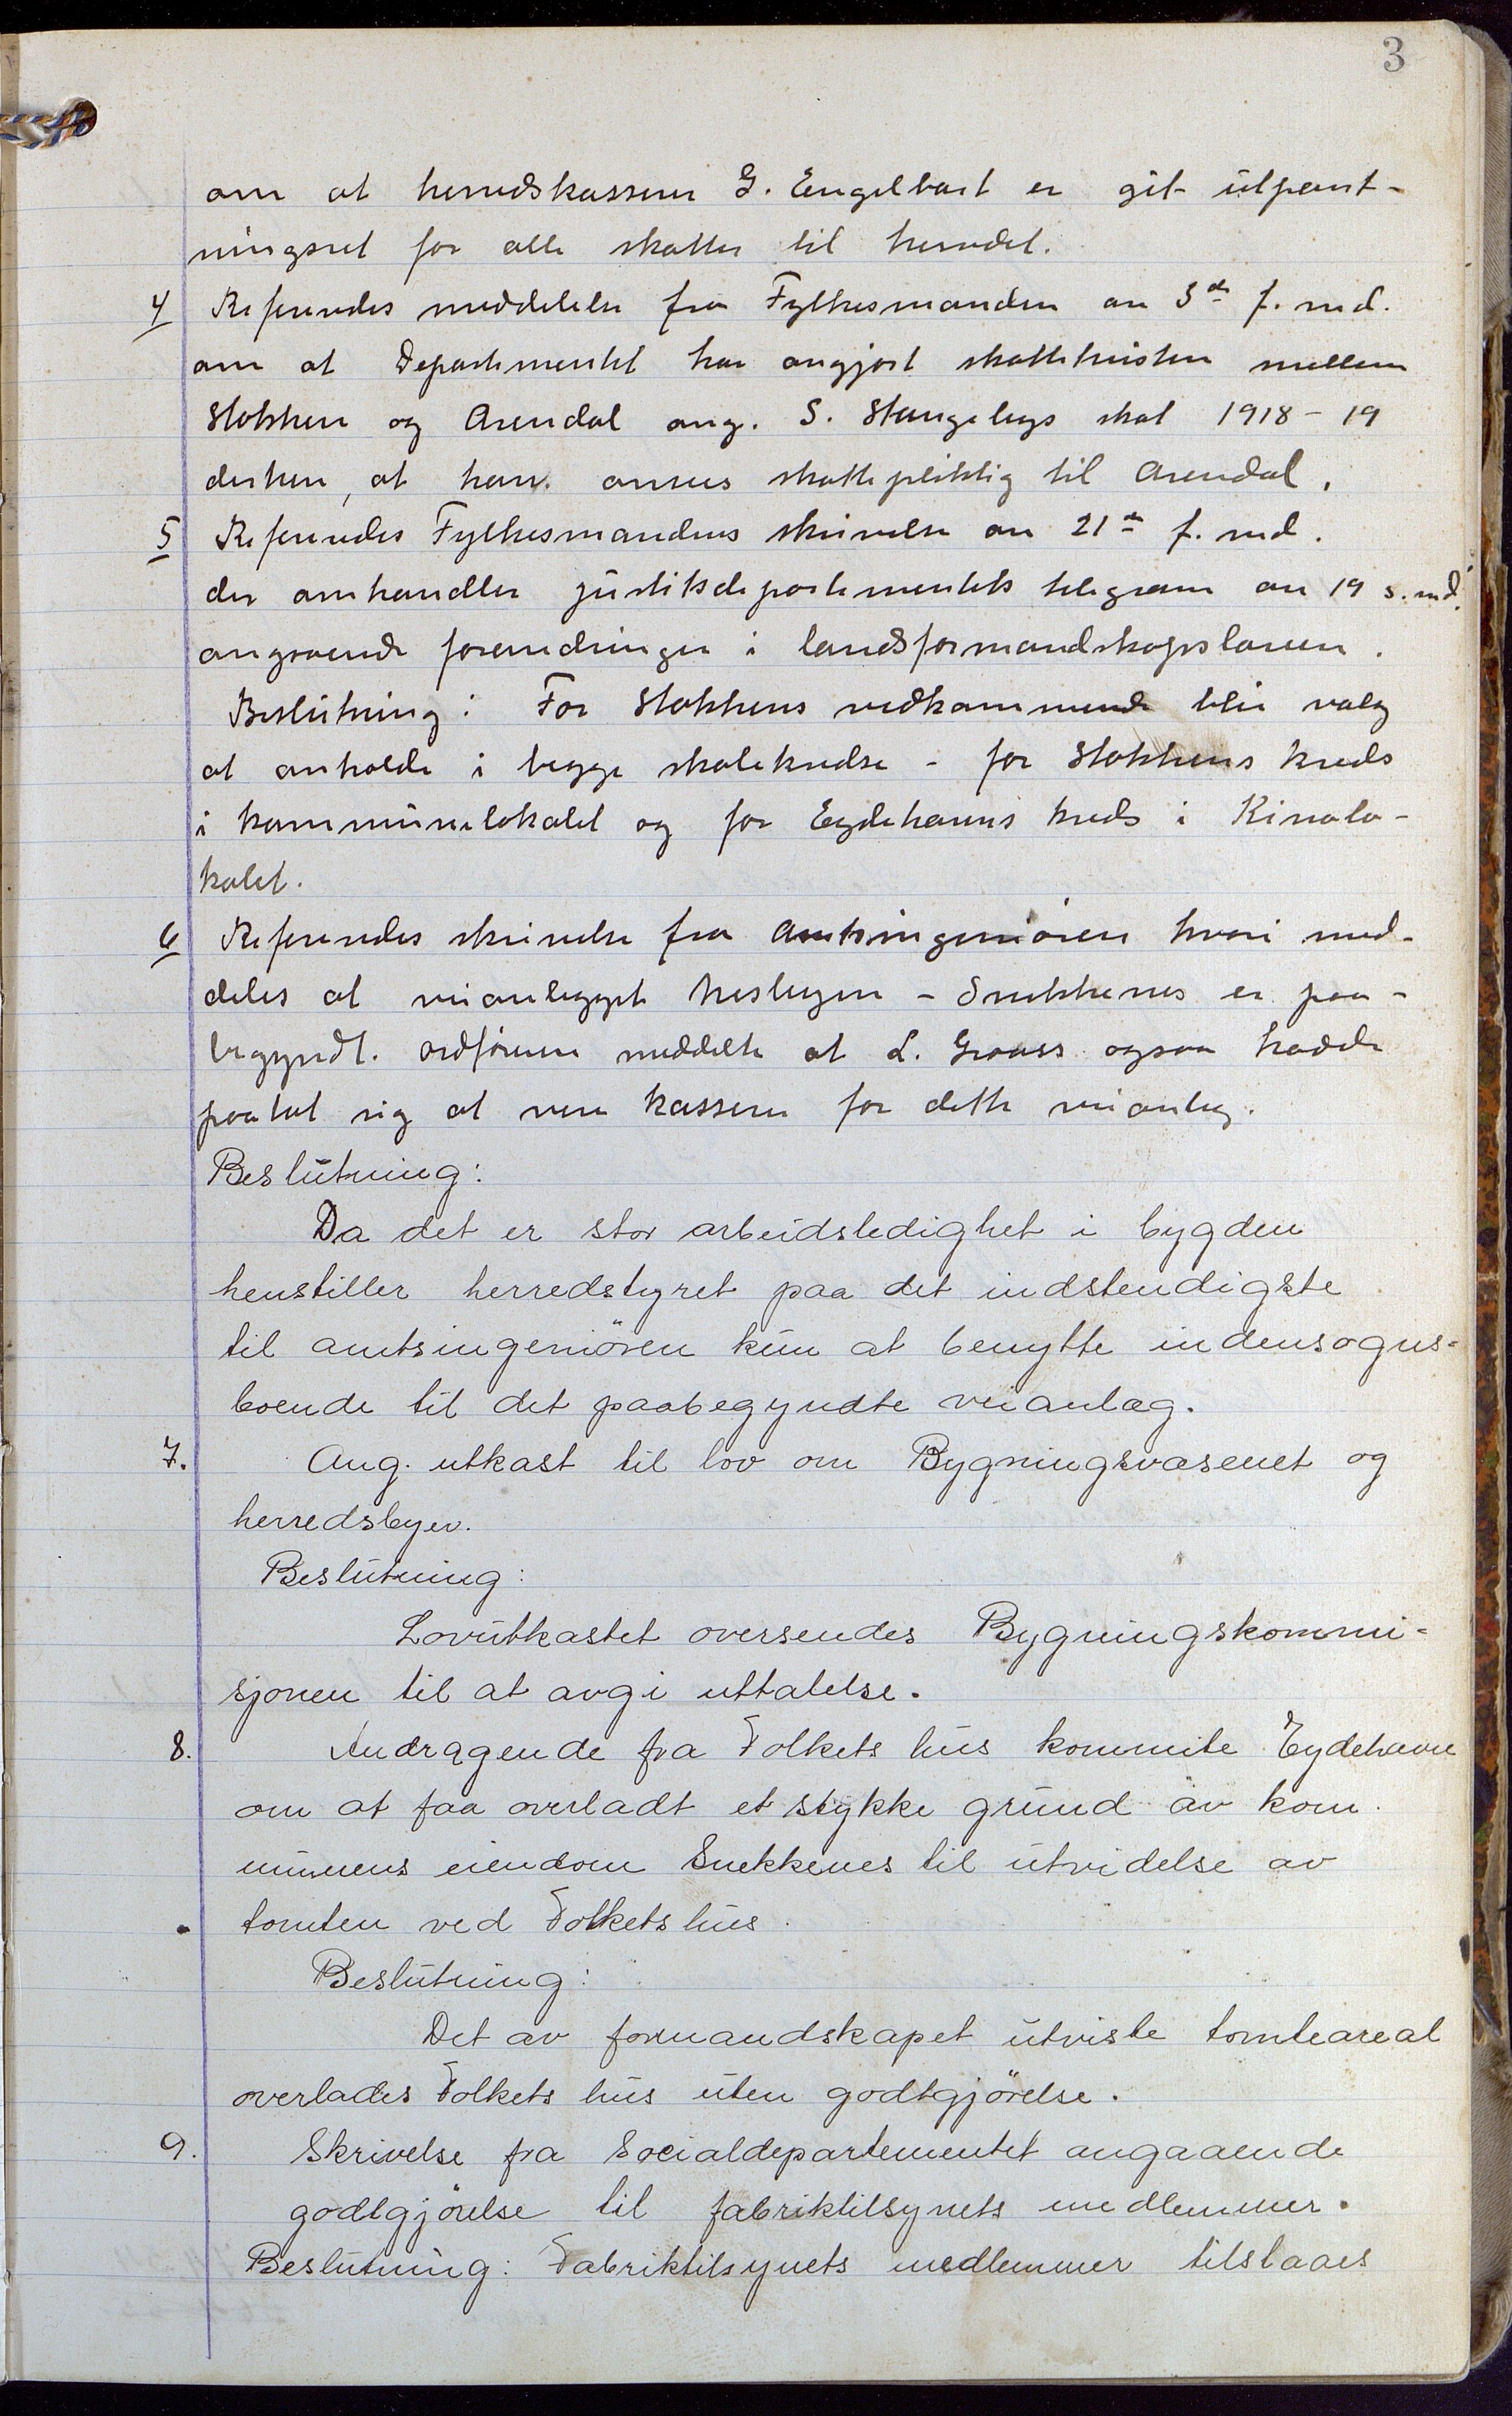 3
om at herredskasserer G. Engelbart er git utpant-
ningsret for alle skatter til herredet.
4 Refereredes meddelelse fra Fylkesmanden av 3de f. md.
om at Departementet har avgjort skattetvisten mellem
Stokken og Arendal ang. S. Stangebyes skat 1918-19
derhen, at han ansees skattepliktig til Arendal.
5 Refereredes Fylkesmandens skrivelse av 21de f. md.
der omhandler justitsdepartementets telegram av 19 s. md.
angaaende forandringer i landsformandskapsloven.
Beslutning: For Stokkens vedkommende blir valg
at avholde i begge skolekredse - for Stokkens kreds
i kommunelokalet og for Eydehavns kreds i Kinolo-
kalet.
6 Refereredes skrivelse fra Amtsingeniøren hvori med-
deles at veianlegget - Snekkenes er paa-
begyndt. Ordføreren meddelte at L. Graass ogsaa hadde
paatat sig at være kasserer for dette veianlæg.
Beslutning:
Da det er stor arbeidsledighet i bygden
henstiller herredstyret paa det indstendigste
til amtsingeniøren kun at benytte indensogns-
boende til det paabegyndte veianlæg.
7. Ang. utkast til lov om Bygningsvæsenet og
herredsbyer.
Beslutning:
Lovutkastet oversendes Bygningskommi-
sjonen til at avgi uttalelse.
8. Andragende fra Folkets hus kommite Eydehavn
om at faa overladt et stykke grund av kom-
munens eiendom Snekkenes til utvidelse av
tomten ved Folkets hus.
Beslutning:
Det av formandskapet utviste tomteareal
overlades Folkets hus uten godtgjörelse.
9. Skrivelse fra Socialdepartementet angaaende
godtgjörelse til fabriktilsynets medlemmer.
Beslutning: Fabriktilsynets medlemmer tilstaaes